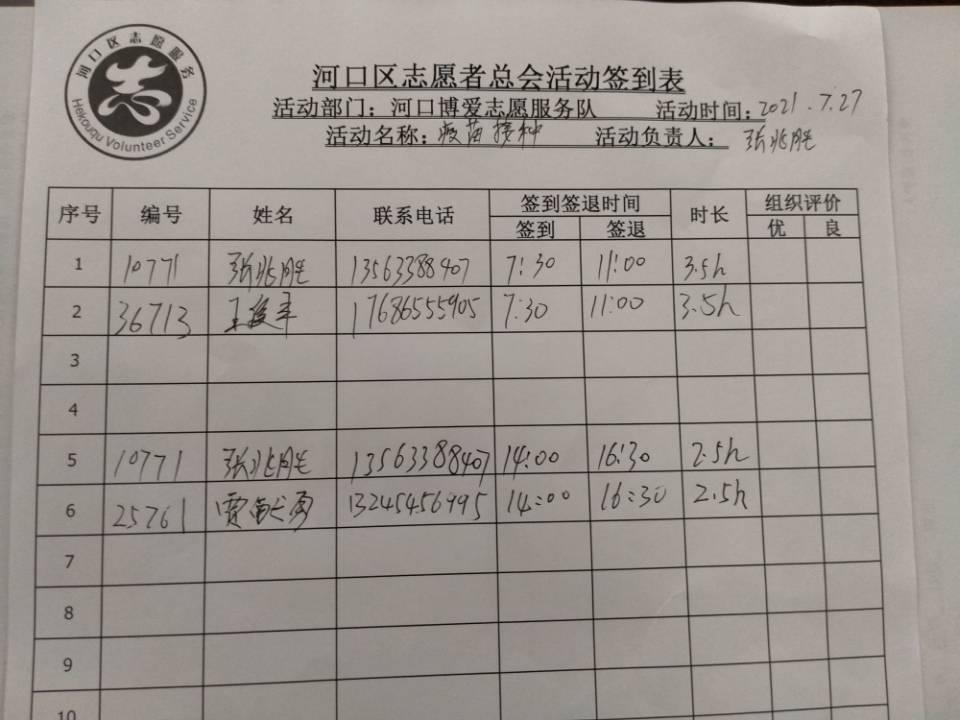 河口区志愿服务
志
Hekouqu Volunteer Service
河口区志愿者总会活动签到表
活动部门：河口博爱志愿服务队 活动时间：2021.7.27
活动名称：疫苗接种 活动负责人：张兆胜
序号 编号 姓名 联系电话 签到签退时间 时长 组织评价
签到 签退 优 良
1 10771 张兆胜 13563388407 7:30 11:00 3.5h
2 36713 王 17686555905 7:30 11:00 3.5h
3
4
5 10771 张兆胜 13563388407 14:00 16:30 2.5h
6 25761 贾 勇 13245456995 14:00 16:30 2.5h
7
8
9
10